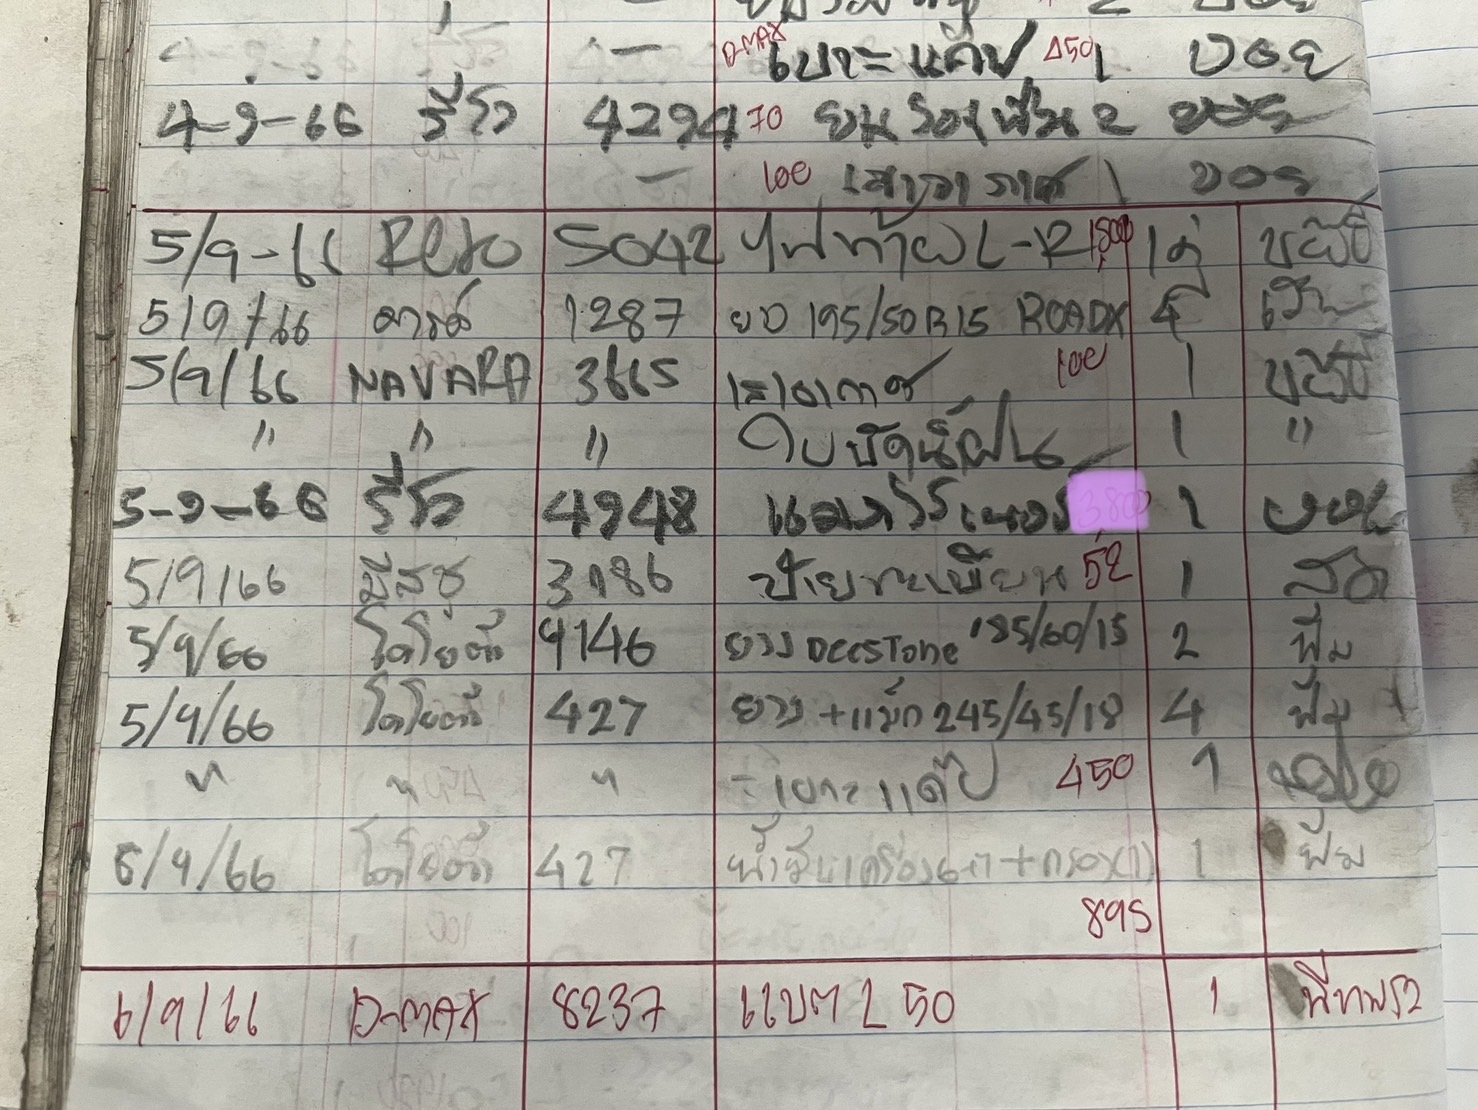 — D-MAX เบาะแค๊ป 450 1 บอย
4-9-66 รีโว 4294 70 2 บอย
— 100 เสาอากาศ 1 บอย
5/9-66 Revo 5042 ไฟท้าย L-R 1800 1 คู่
5/9/66 1287 195/50R15 ROADX 4
5/9/66 NAVARA 3665 เสาอากาศ 100 1
" " " ใบปัดน้ำฝน 1 "
5-9-66 รีโว 4948 3800 1 บอย
5/9/66 อีสูซุ 3186 ป้ายทะเบียน 52 1
5/9/66 โตโยต้า 9146 ยาง Deestone 185/60/15 2 ฟิม
5/9/66 โตโยต้า 427 ยาง + แม็ก 245/45/18 4 ฟิม
" " " เบาะแค๊ป 450 1
5/9/66 โตโยต้า 427 น้ำมันเครื่อง + กรอง (1) 1 ฟิม
895
6/9/66 D-MAX 8237 แบต L 50 1